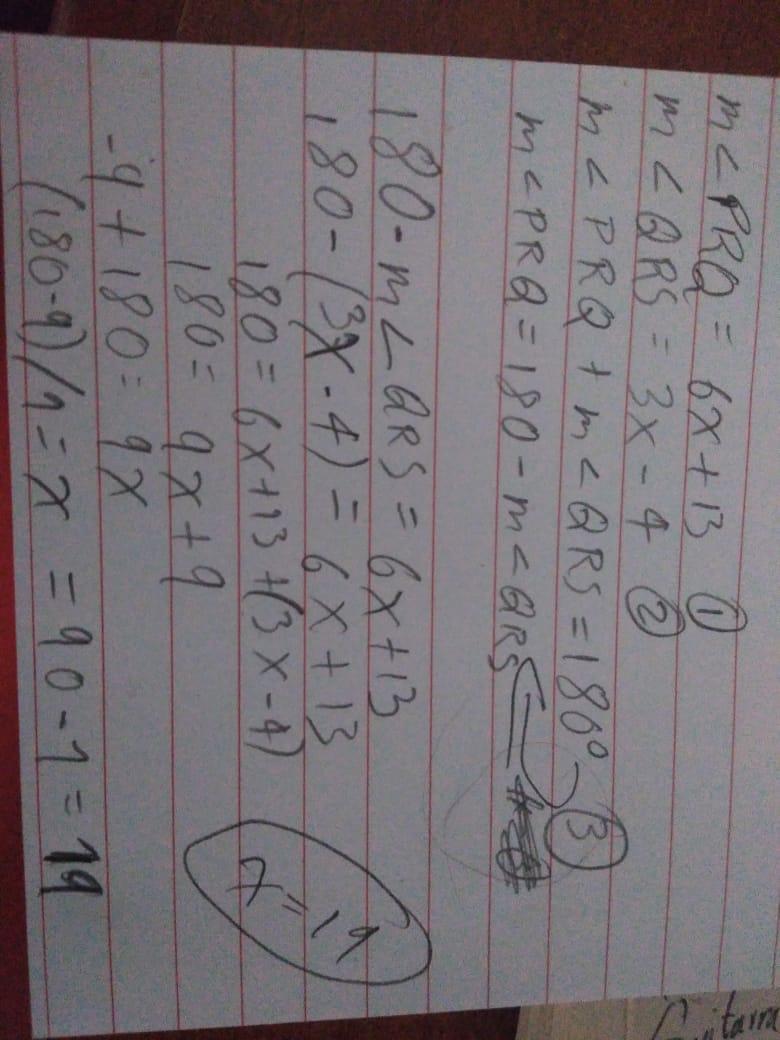 m<PRQ = 6x+13 ①
m<QRS = 3x-4 ②
m<PRQ + m<QRS = 180° - ③
m<PRQ = 180 - m<QRS
180 - m<QRS = 6x+13
180 - (3x-4) = 6x+13
180 = 6x+13+(3x-4)
180 = 9x+9
-9+180 = 9x
(180-9)/9 = x = 90-1 = 19
x = 19